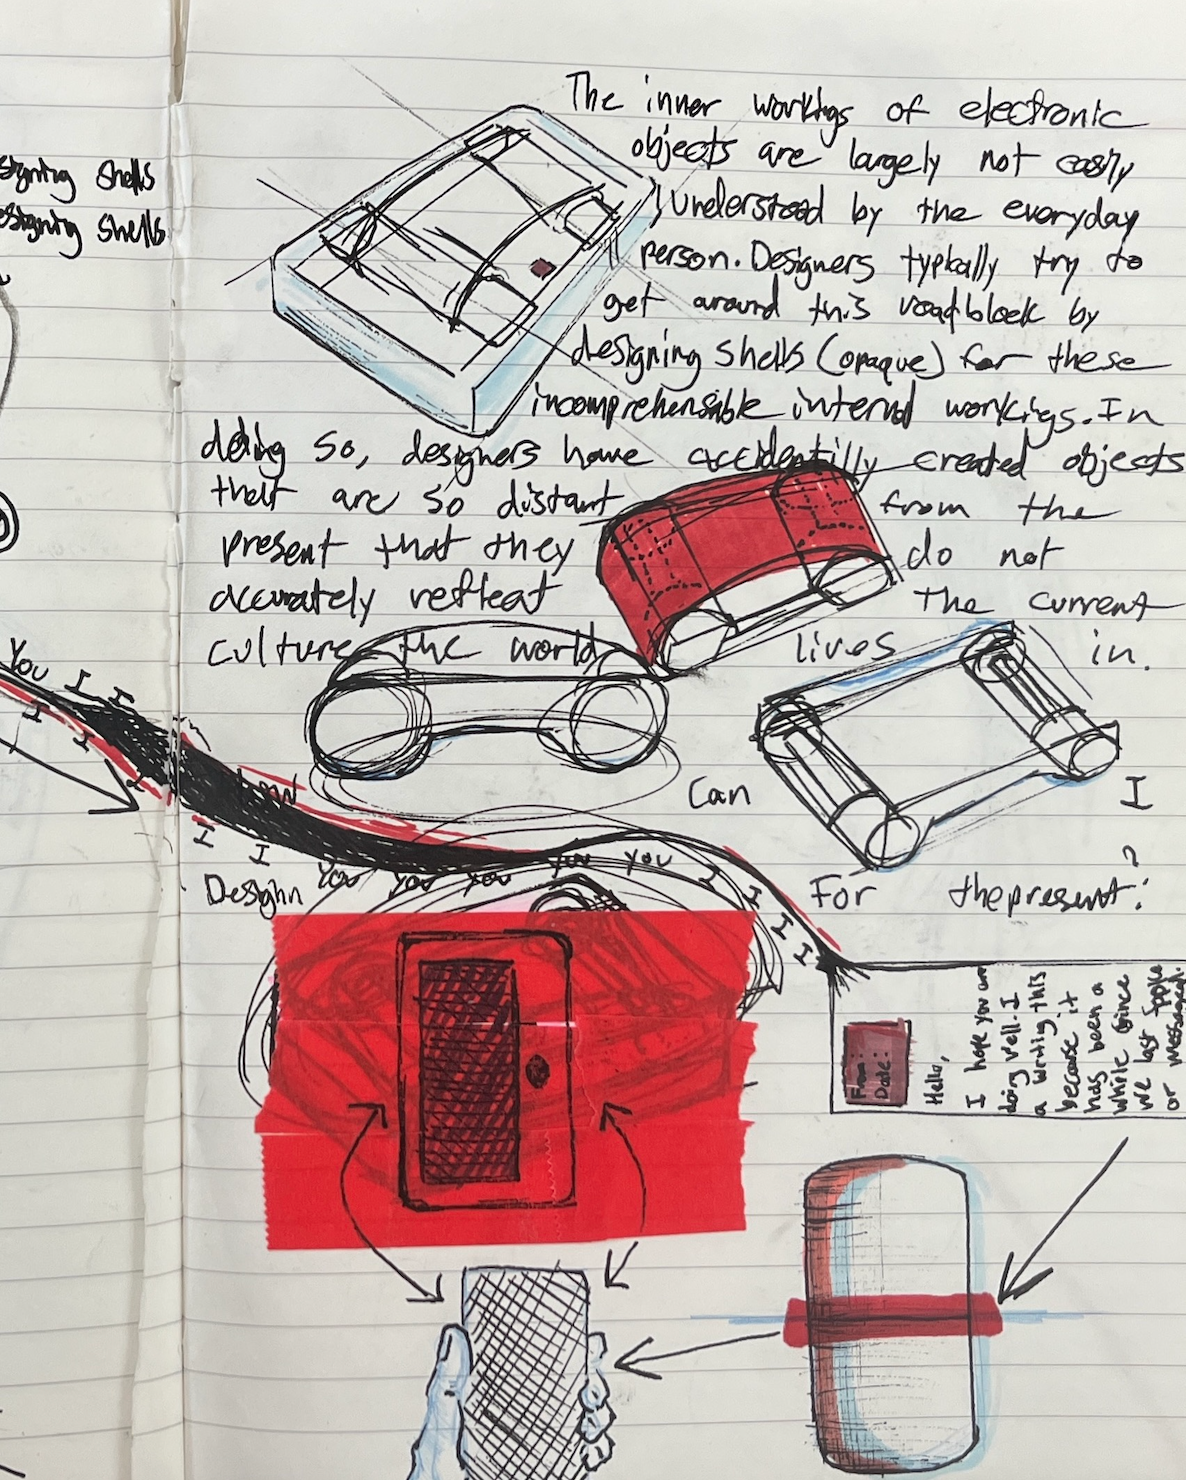 signing shells
esigning shells
The inner workigs of electronic
objects are largely not easily
understood by the everyday
person. Designers typically try to
get around this roadblock by
designing shells (opaque) for these
incomprehensible internal workigs. In
doing so, designers have accidentilly created objects
that are so distant from the
present that they do not
accurately reflect the current
culture the world lives in.
You I I
I I I
How Can I
I I You You You You You I I I I
Designn For the present?
From:
Date:
Hello,
I hope you are
doing well. I
a writing this
because it
has been a
while since
we last spoke
or messaged.